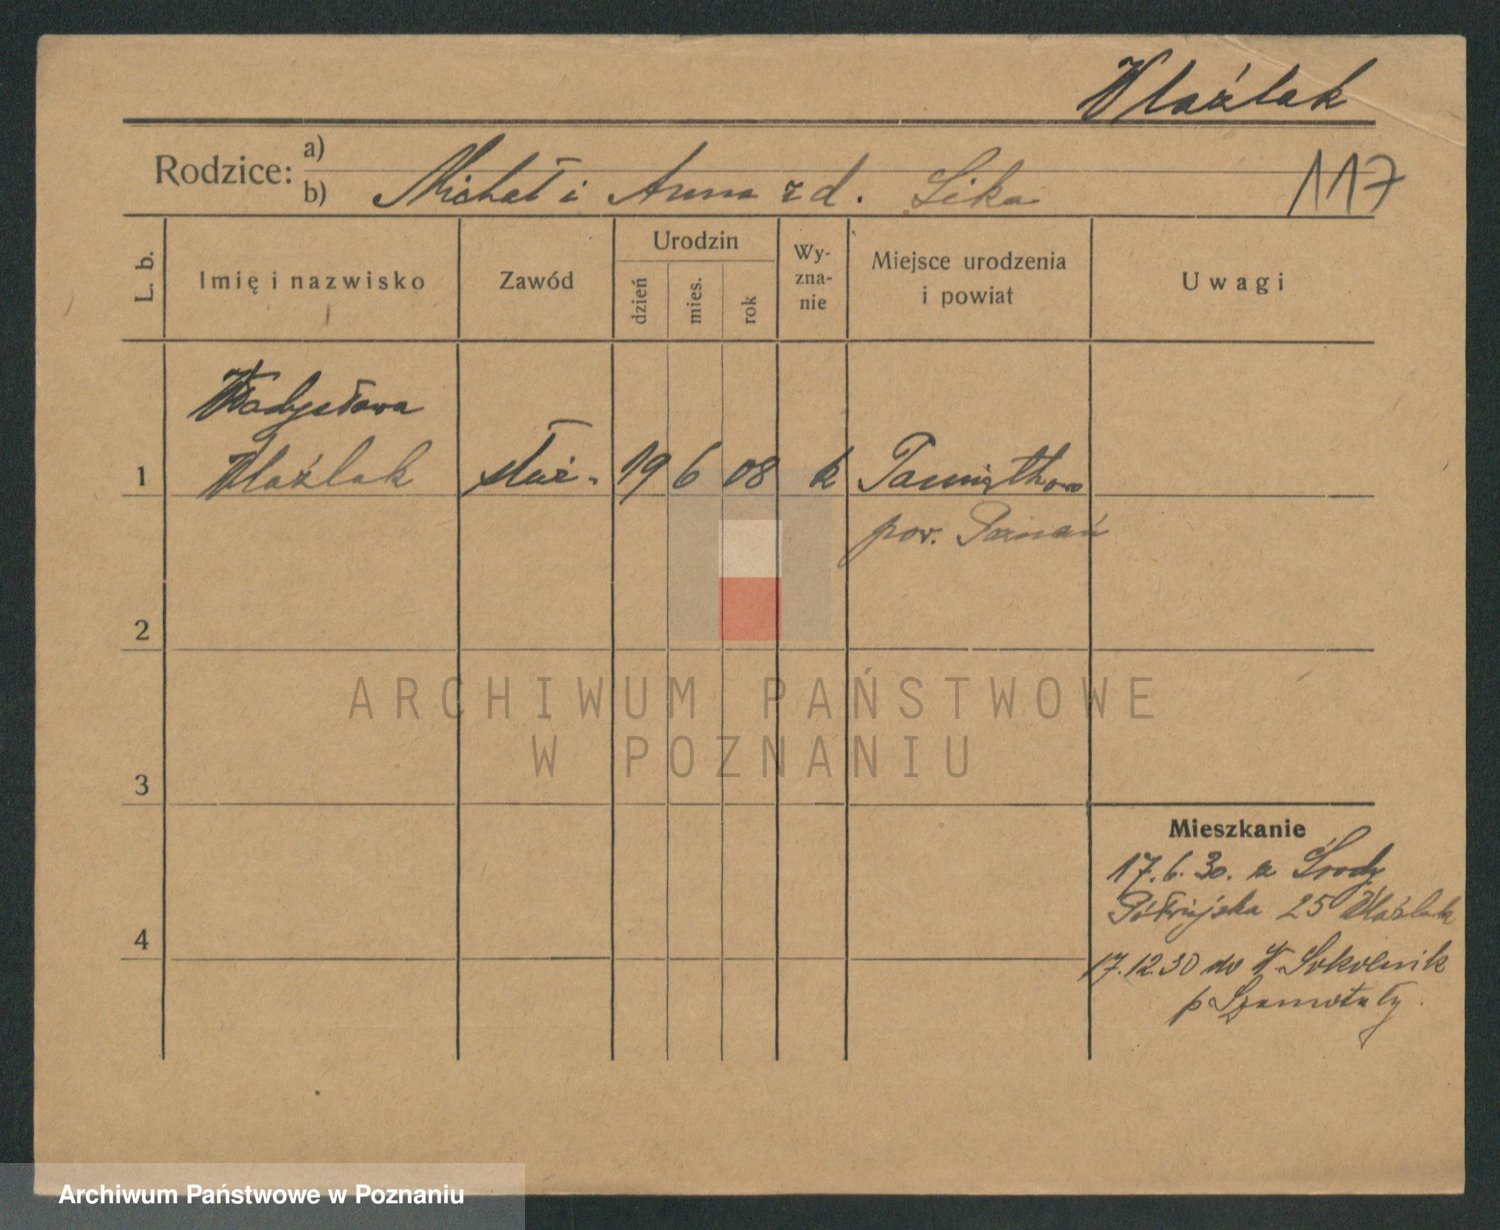 Wlaźlak
Rodzice: a)
b) Michał i Anna z d. Sika
117
L. b.
Imię i nazwisko
Zawód
Urodzin
dzień
mies.
rok
Wy-
zna-
nie
Miejsce urodzenia
i powiat
Uwagi
Władysława
1 Wlaźlak służ. 19 6 08 k Pamiątkowo
pow. Poznań
2
3
4
Mieszkanie
17.6.30. z Środy
25 Wlaźlak
17.12.30 do W. Sokolnik
p Szamotuły.
ARCHIWUM PAŃSTWOWE
W POZNANIU
Archiwum Państwowe w Poznaniu